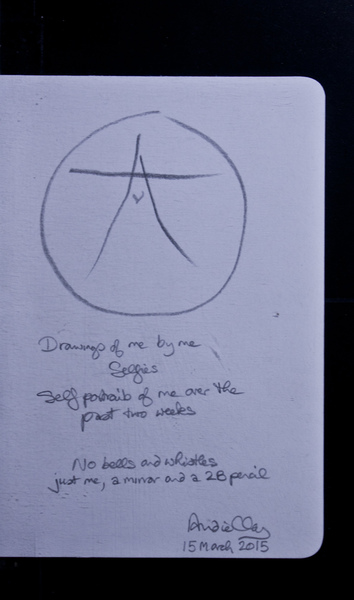 Drawings of me by me
Selfies
Self portraits of me over the
past two weeks
No bells and whistles
just me, a mirror and a 2B pencil
Clay
15 March 2015